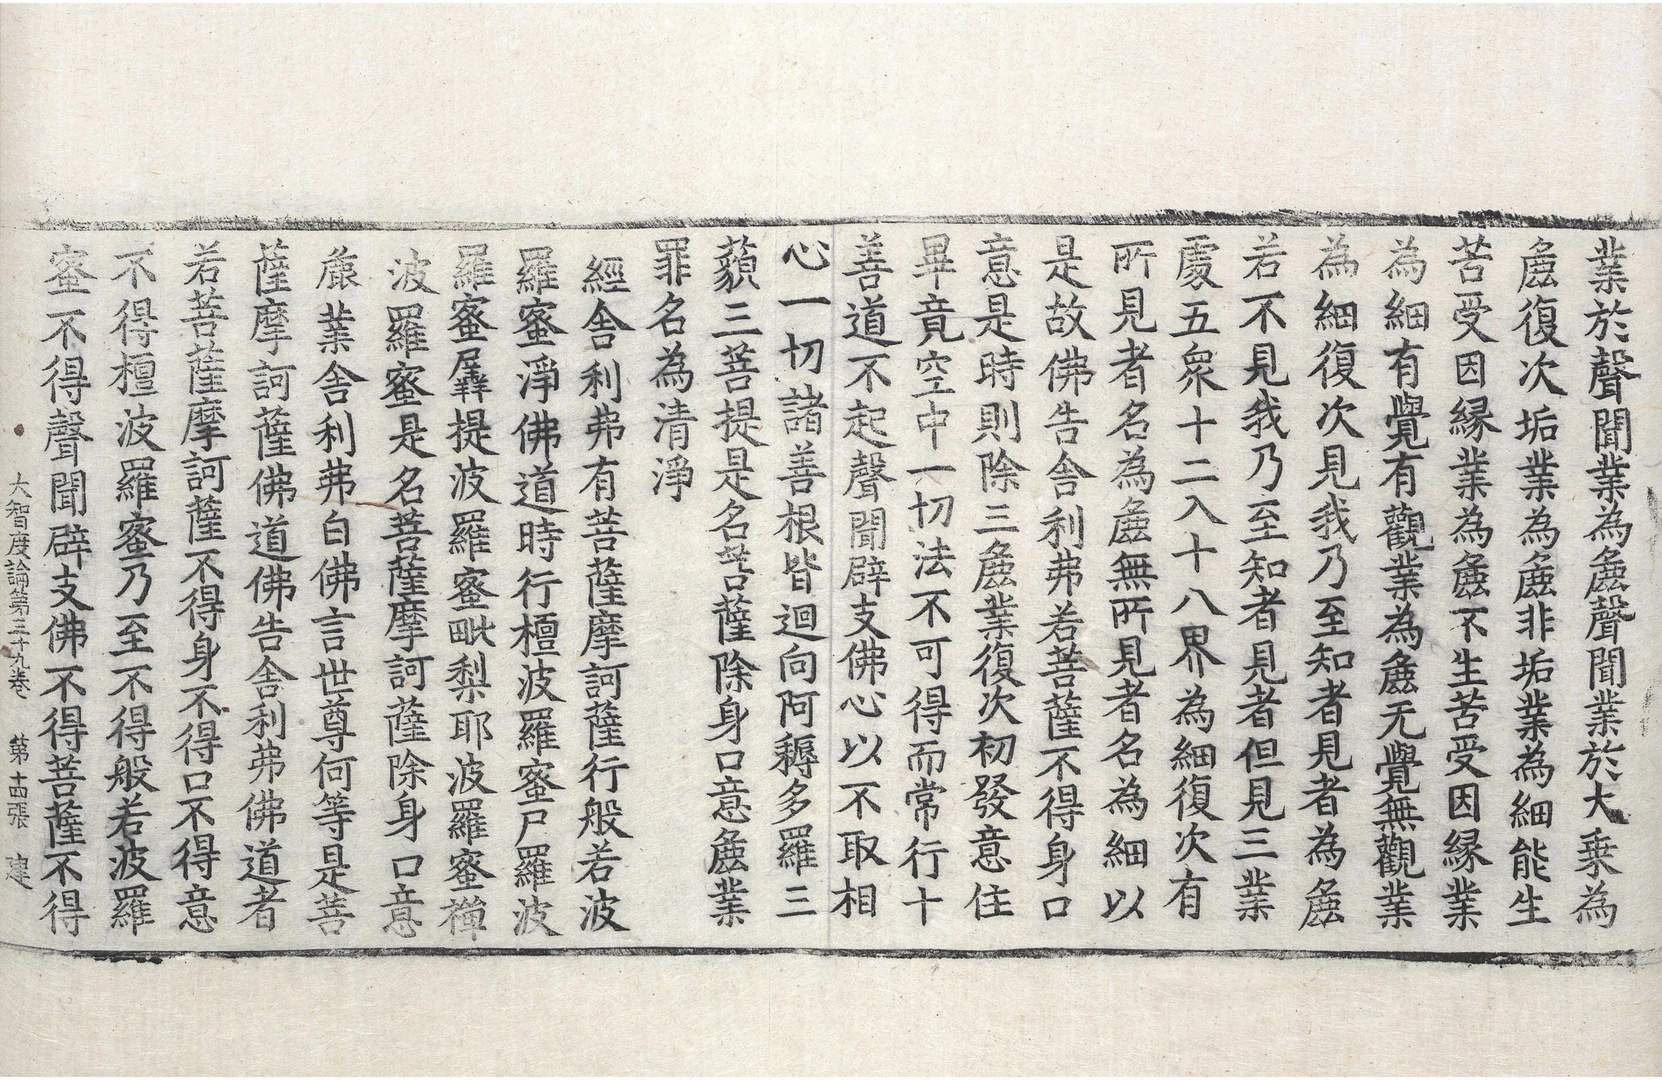 業於聲聞業為麁聲聞業於大乘為
麁復次垢業為麁非垢業為細能生
苦受因縁業為麁不生苦受因縁業
為細有覺有觀業為麁无覺無觀業
為細復次見我乃至知者見者為麁
若不見我乃至知者見者但見三業
處五衆十二入十八界為細復次有
所見者名為麁無所見者名為細以
是故佛告舎利弗若菩薩不得身口
意是時則除三麁業復次初發意住
畢竟空中一切法不可得而常行十
善道不起聲聞辟支佛心以不取相
心一切諸善根皆迴向阿耨多羅三
藐三菩提是名菩薩除身口意麁業
罪名為清淨
經舎利弗有菩薩摩訶薩行般若波
羅蜜淨佛道時行檀波羅蜜尸羅波
羅蜜羼提波羅蜜毗梨耶波羅蜜禪
波羅蜜是名菩薩摩訶薩除身口意
麁業舎利弗白佛言世尊何等是菩
薩摩訶薩佛道佛告舎利弗佛道者
若菩薩摩訶薩不得身不得口不得意
不得檀波羅蜜乃至不得般若波羅
蜜不得聲聞辟支佛不得菩薩不得
大智度論第三十九卷 第十四張 建